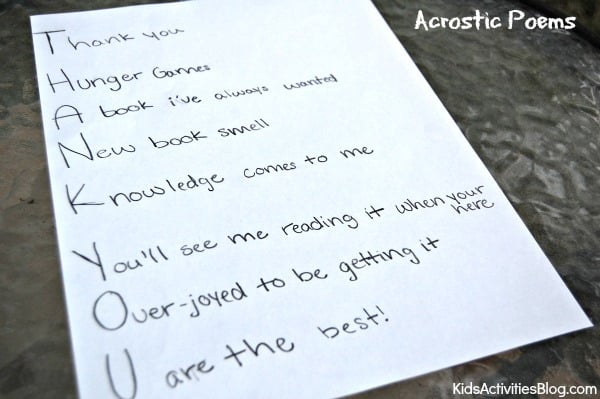 Acrostic Poems
Thank you
Hunger Games
A book i've always wanted
New book smell
Knowledge comes to me
You'll see me reading it when your
here
Over-joyed to be getting it
U are the best!
KidsActivitiesBlog.com